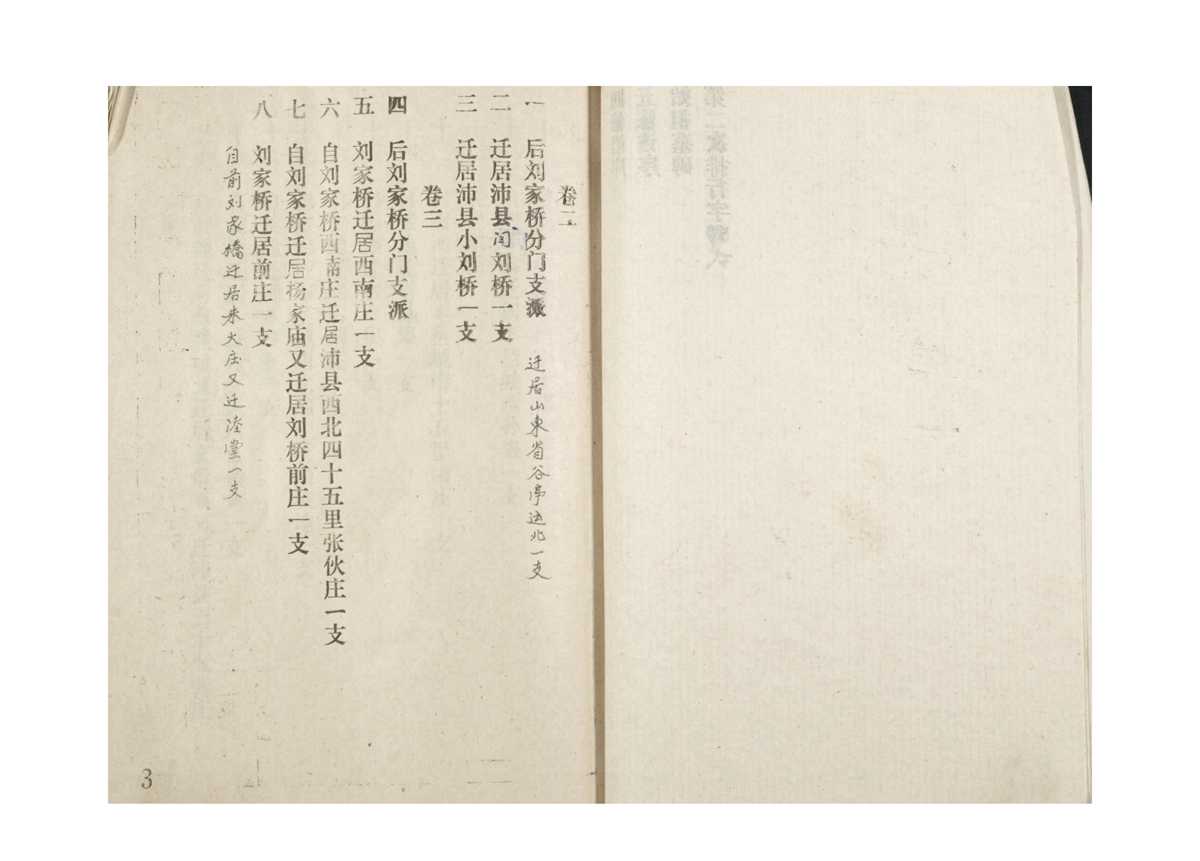 卷二
一 后刘家桥分门支派 迁居山東省谷亭迤北一支
二 迁居沛县闫刘桥一支
三 迁居沛县小刘桥一支
卷三
四 后刘家桥分门支派
五 刘家桥迁居西南庄一支
六 自刘家桥西南庄迁居沛县西北四十五里张伙庄一支
七 自刘家桥迁居杨家庙又迁居刘桥前庄一支
八 刘家桥迁居前庄一支
自前刘家橋迁居来大庄又迁 堂一支
3